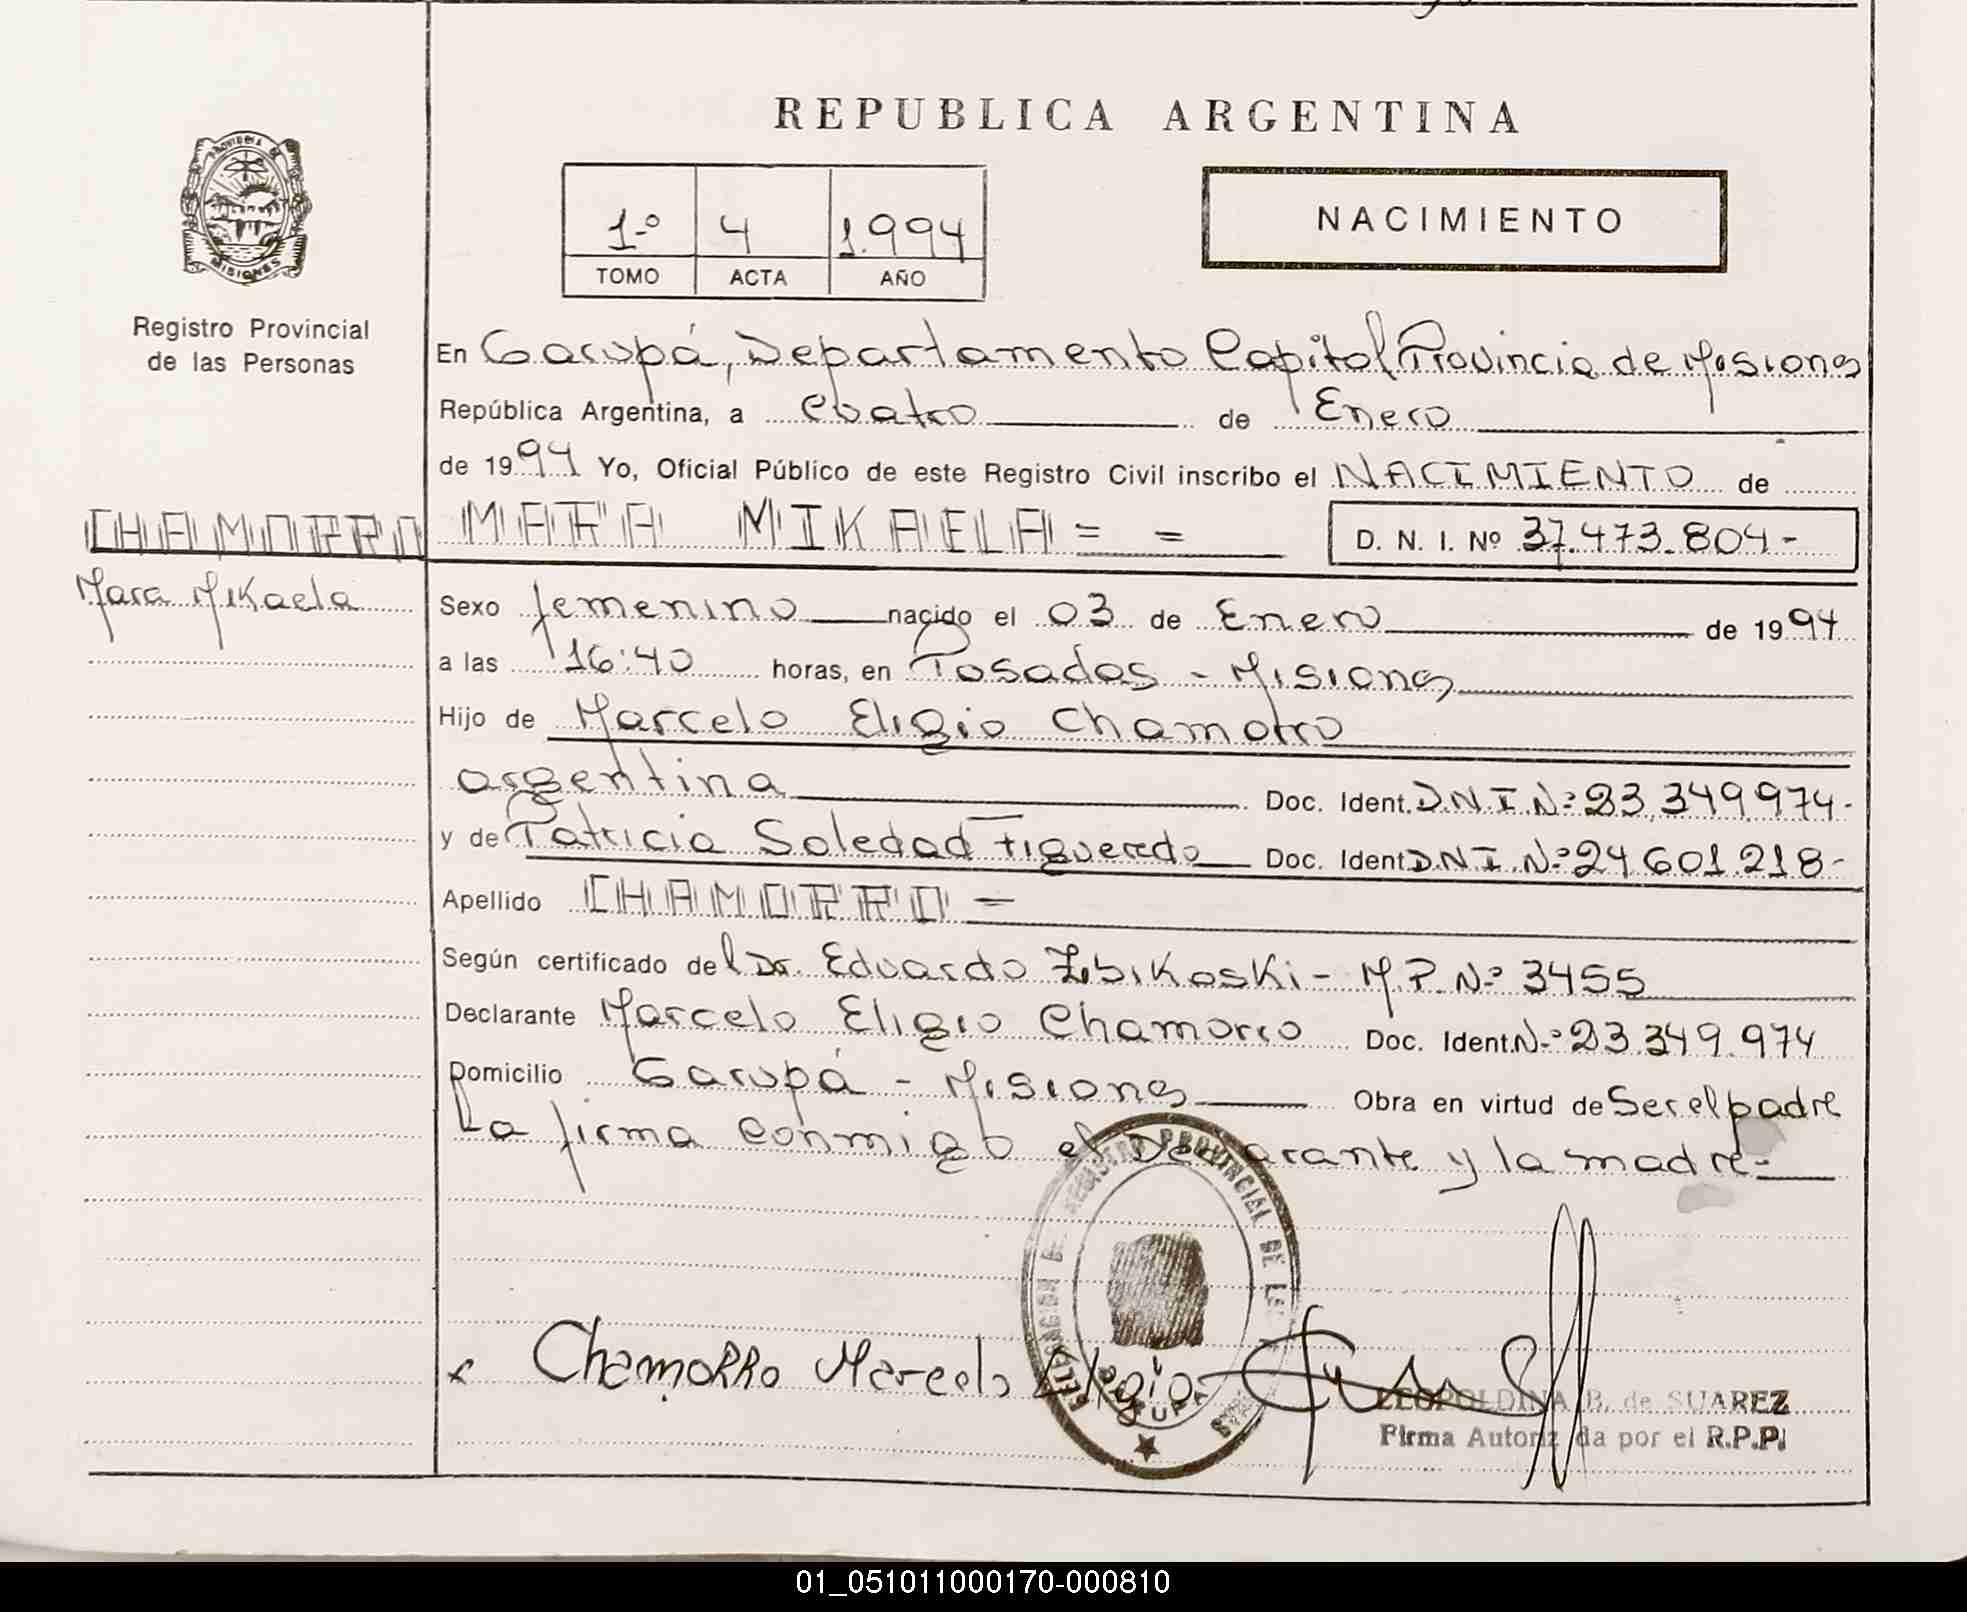 REPUBLICA ARGENTINA
PROVINCIA DE
MISIONES
Registro Provincial
de las Personas
1º 4 1.994
TOMO ACTA AÑO
NACIMIENTO
En Garupá, Departamento Capital Provincia de Misiones
República Argentina, a cuatro de Enero
de 1994 Yo, Oficial Público de este Registro Civil inscribo el NACIMIENTO de
CHAMORRO MARA MIKAELA = = D. N. I. Nº 37.473.804-
Mara Mikaela
Sexo femenino nacido el 03 de Enero de 1994
a las 16:40 horas, en Posadas - Misiones
Hijo de Marcelo Eligio Chamorro
argentina Doc. Ident. D.N.I.Nº 23.349.974-
y de Patricia Soledad Figueredo Doc. Ident D.N.I.Nº 24.601.218-
Apellido CHAMORRO =
Según certificado del Dr. Eduardo Zbikoski - M.P. Nº 3455
Declarante Marcelo Eligio Chamorro Doc. Ident. Nº 23.349.974
Domicilio Garupá - Misiones Obra en virtud de Ser el padre
La firma conmigo el Declarante y la madre.-
DELEGACION REGISTRO PROVINCIAL DE LAS
GARUPA
Chamorro Marcelo Eligio
LEOPOLDINA B. de SUAREZ
Firma Autorizada por el R.P.P.
01_051011000170-000810